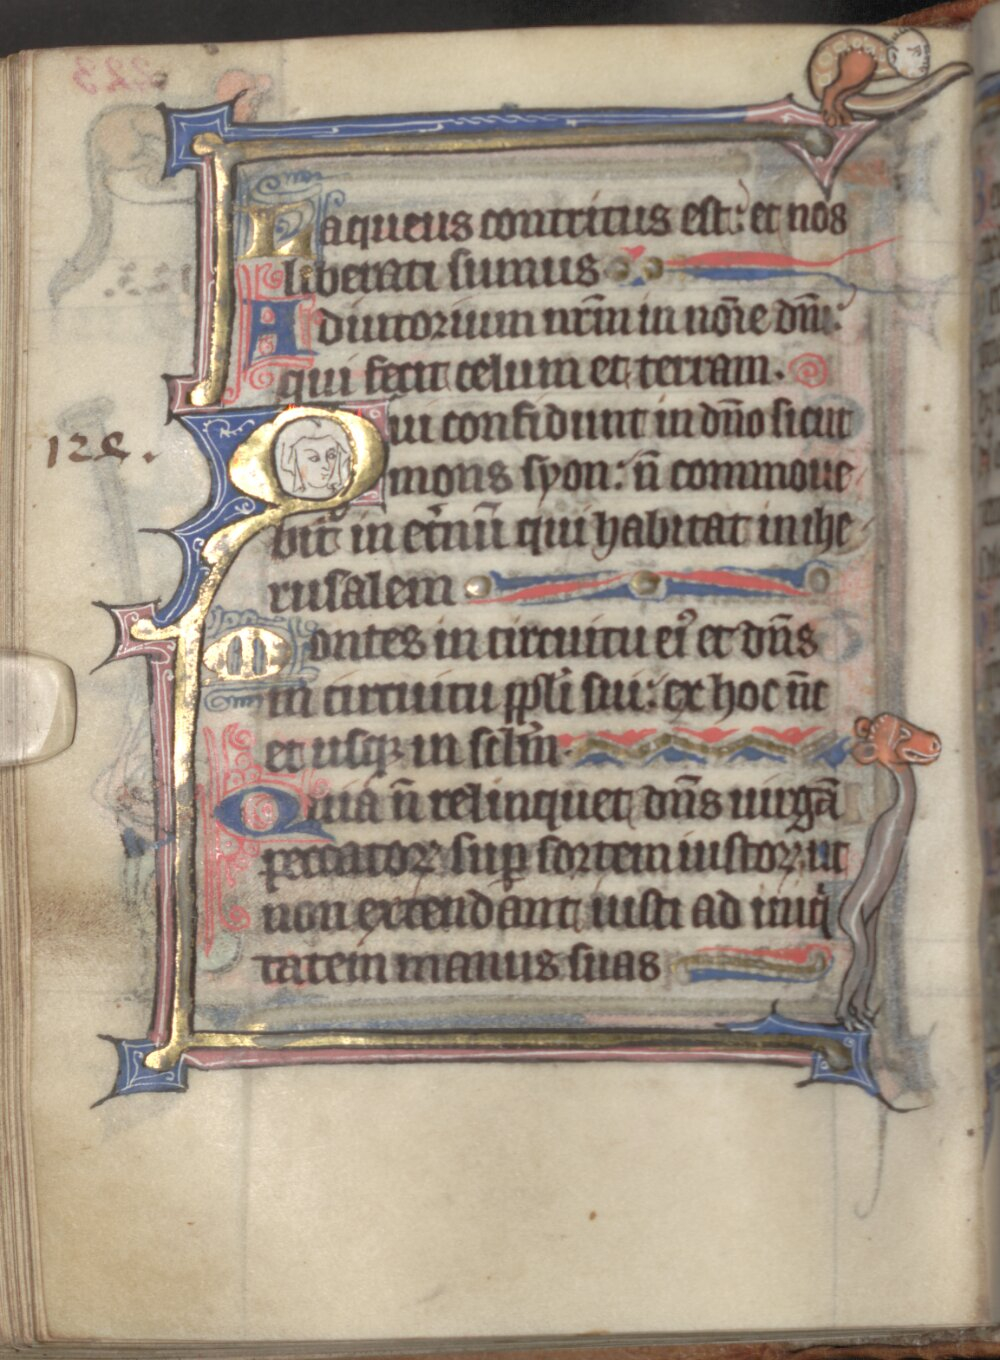 Laqueus contritus est: et nos
liberati sumus
Adiutorium nr̄m in nōie dn̄i:
qui fecit celum et terram.
124.
Qui confidunt in dn̄o sicut
mons syon: n̄ commoue
bit᷑ in et̄nū qui habitat in ihe
rusalem
Montes in circuitu eiꝰ et dn̄s
in circuitu ppl̄i sui: ex hoc n̄c
et usqꝫ in sc̄lm̄.
Quia n̄ relinquet dn̄s uirgā
peccatoꝝ suꝑ sortem iustoꝝ ut
non extendant iusti ad iniqͥ
tatem manus suas